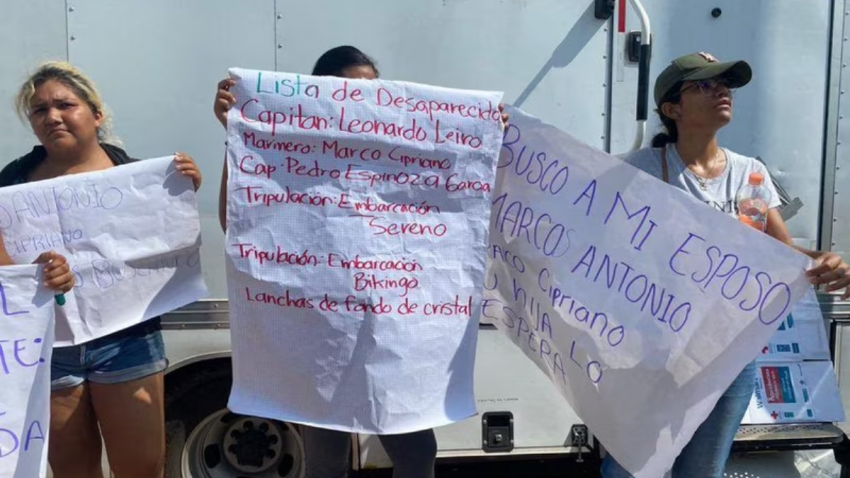 ANTONIO
CIPRIANO
Lista de Desaparecido
Capitan: Leonardo Leiro
Marinero: Marco Cipriano
Cap. Pedro Espinoza Garoa
Tripulación: Embarcación
Sereno
Tripulación: Embarcación
Bikingo
Lanchas de fondo de cristal
BUSCO A MI ESPOSO
MARCOS ANTONIO
Cipriano
HIJA LO
ESPERA